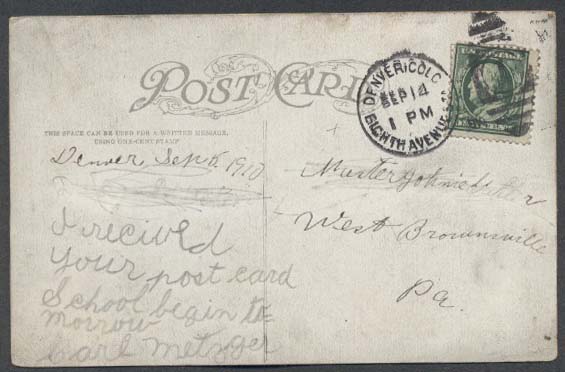 POST CARD
DENVER, COLO.
SEP 14
1 PM
EIGHTH AVENUE
THIS SPACE CAN BE USED FOR A WRITTEN MESSAGE,
USING ONE-CENT STAMP
Denver, Sept 5, 1910
I recived
your post card
School begin to=
morrow
Carl Metzger
Master Johnie
West Brownsville
Pa.